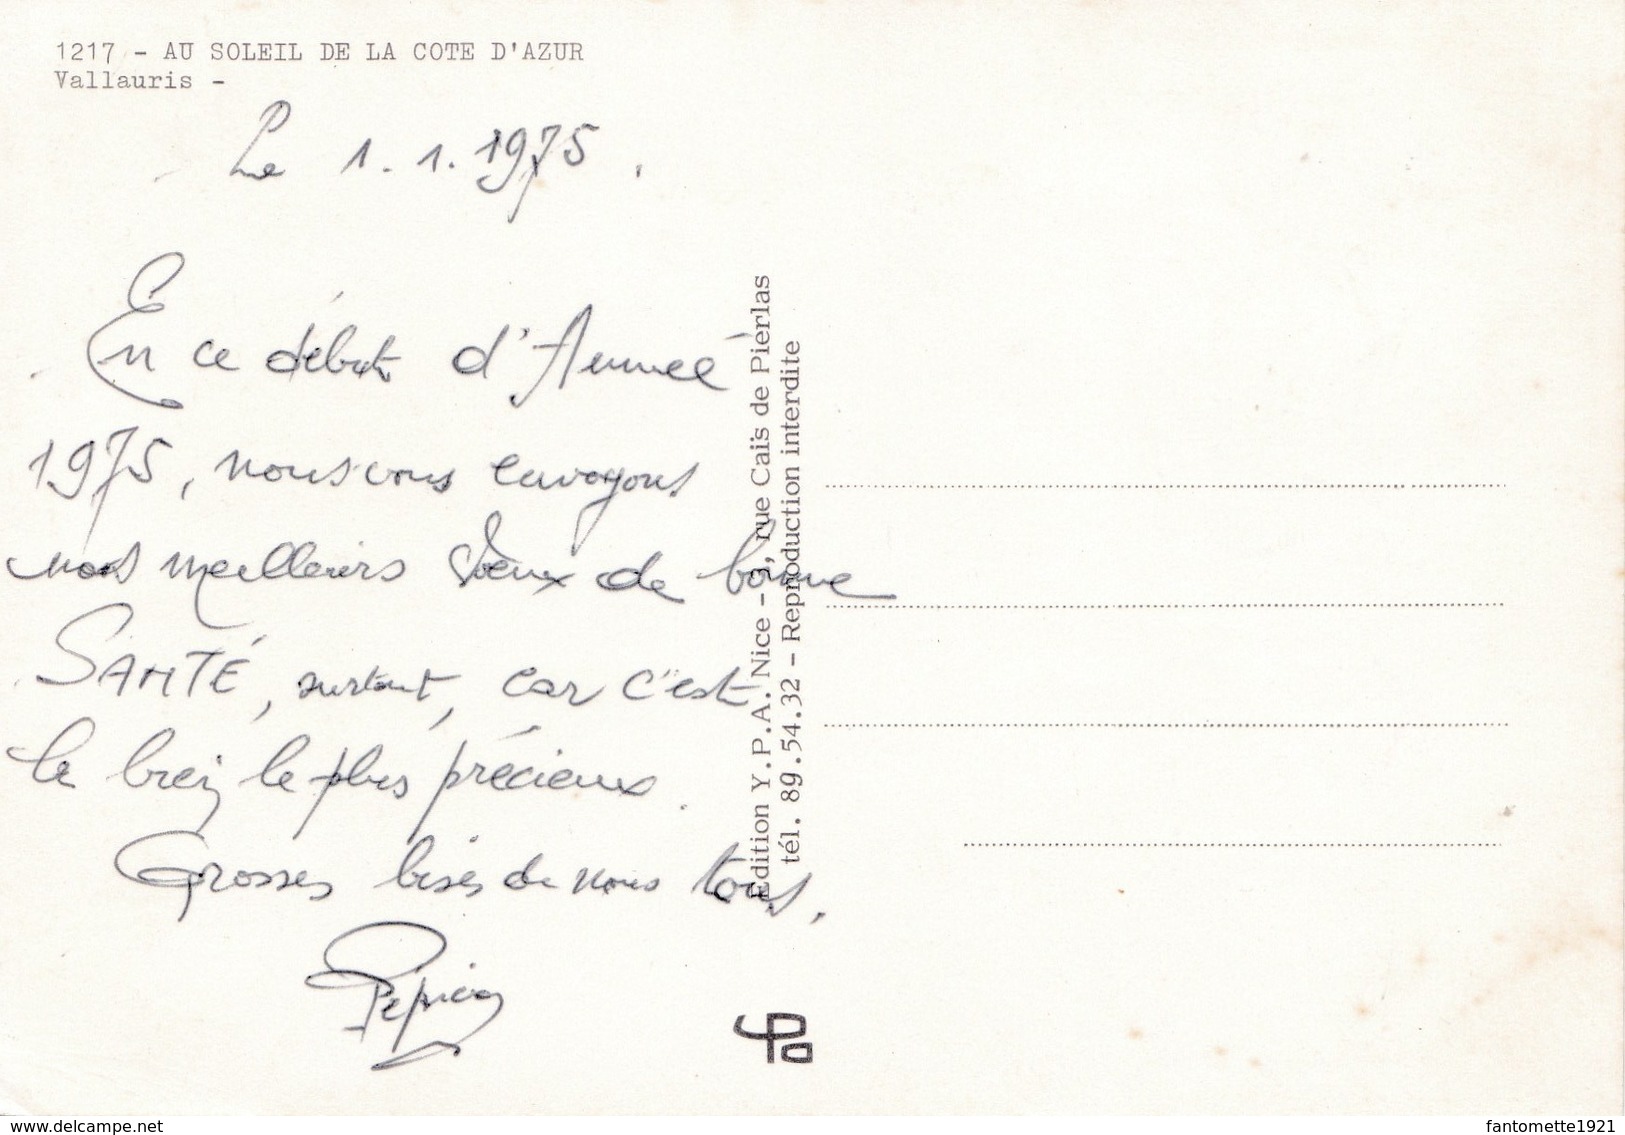 1217 - AU SOLEIL DE LA COTE D'AZUR
Vallauris -
Le 1.1.1975.
En ce début d'Année
1975, nous vous envoyons
nos meilleurs Voeux de bonne
SANTÉ, surtout, car c'est
le bien le plus précieux.
Grosses bises de nous tous.
Edition Y.P.A. Nice - 3, rue Caïs de Pierlas
tél. 89.54.32 - Reproduction interdite
www.delcampe.net
fantomette1921